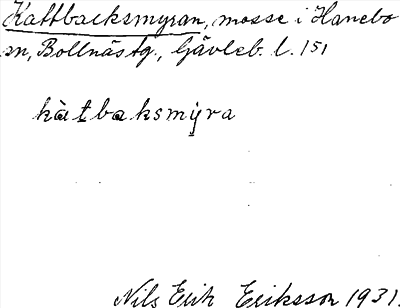 Kattbacksmyran, mosse i Hanebo
sn, Bollnäs tg., Gävleb. l. 151
kàtbaksmýra
Nils Erik Eriksson 1931.